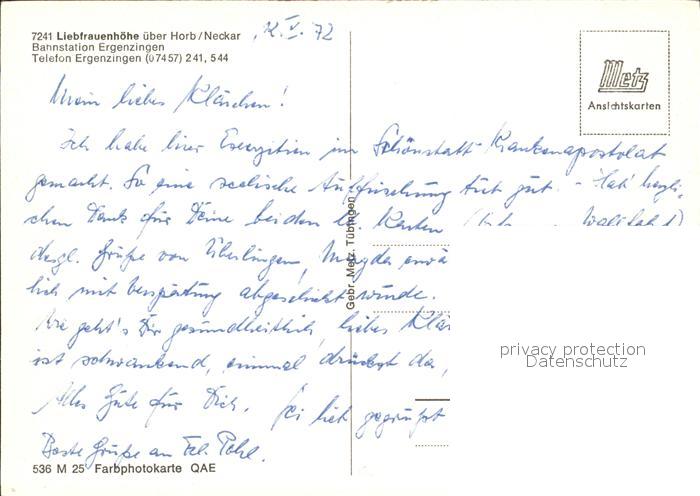 7241 Liebfrauenhöhe über Horb/Neckar
Bahnstation Ergenzingen
Telefon Ergenzingen (07457) 241, 544
12.V.72
Metz
Ansichtskarten
Mein liebes Klärchen!
Ich habe hier Exerzitien im Schönstatt-Krankenapostolat
gemacht. So eine seelische Auffrischung tut gut. – Hab' herzli-
chen Dank für Deine beiden lb. Karten
desgl. Grüße von Überlingen, Magda
lich mit Verspätung abgeschickt wurde.
Wie geht's Dir gesundheitlich, liebes Klär
ist schwankend, einmal drückt da,
Alles Gute für Dich. Sei lieb gegrüßt
Beste Grüße an Frl. Pohl.
Gebr. Metz, Tübingen
privacy protection
Datenschutz
536 M 25 Farbphotokarte QAE